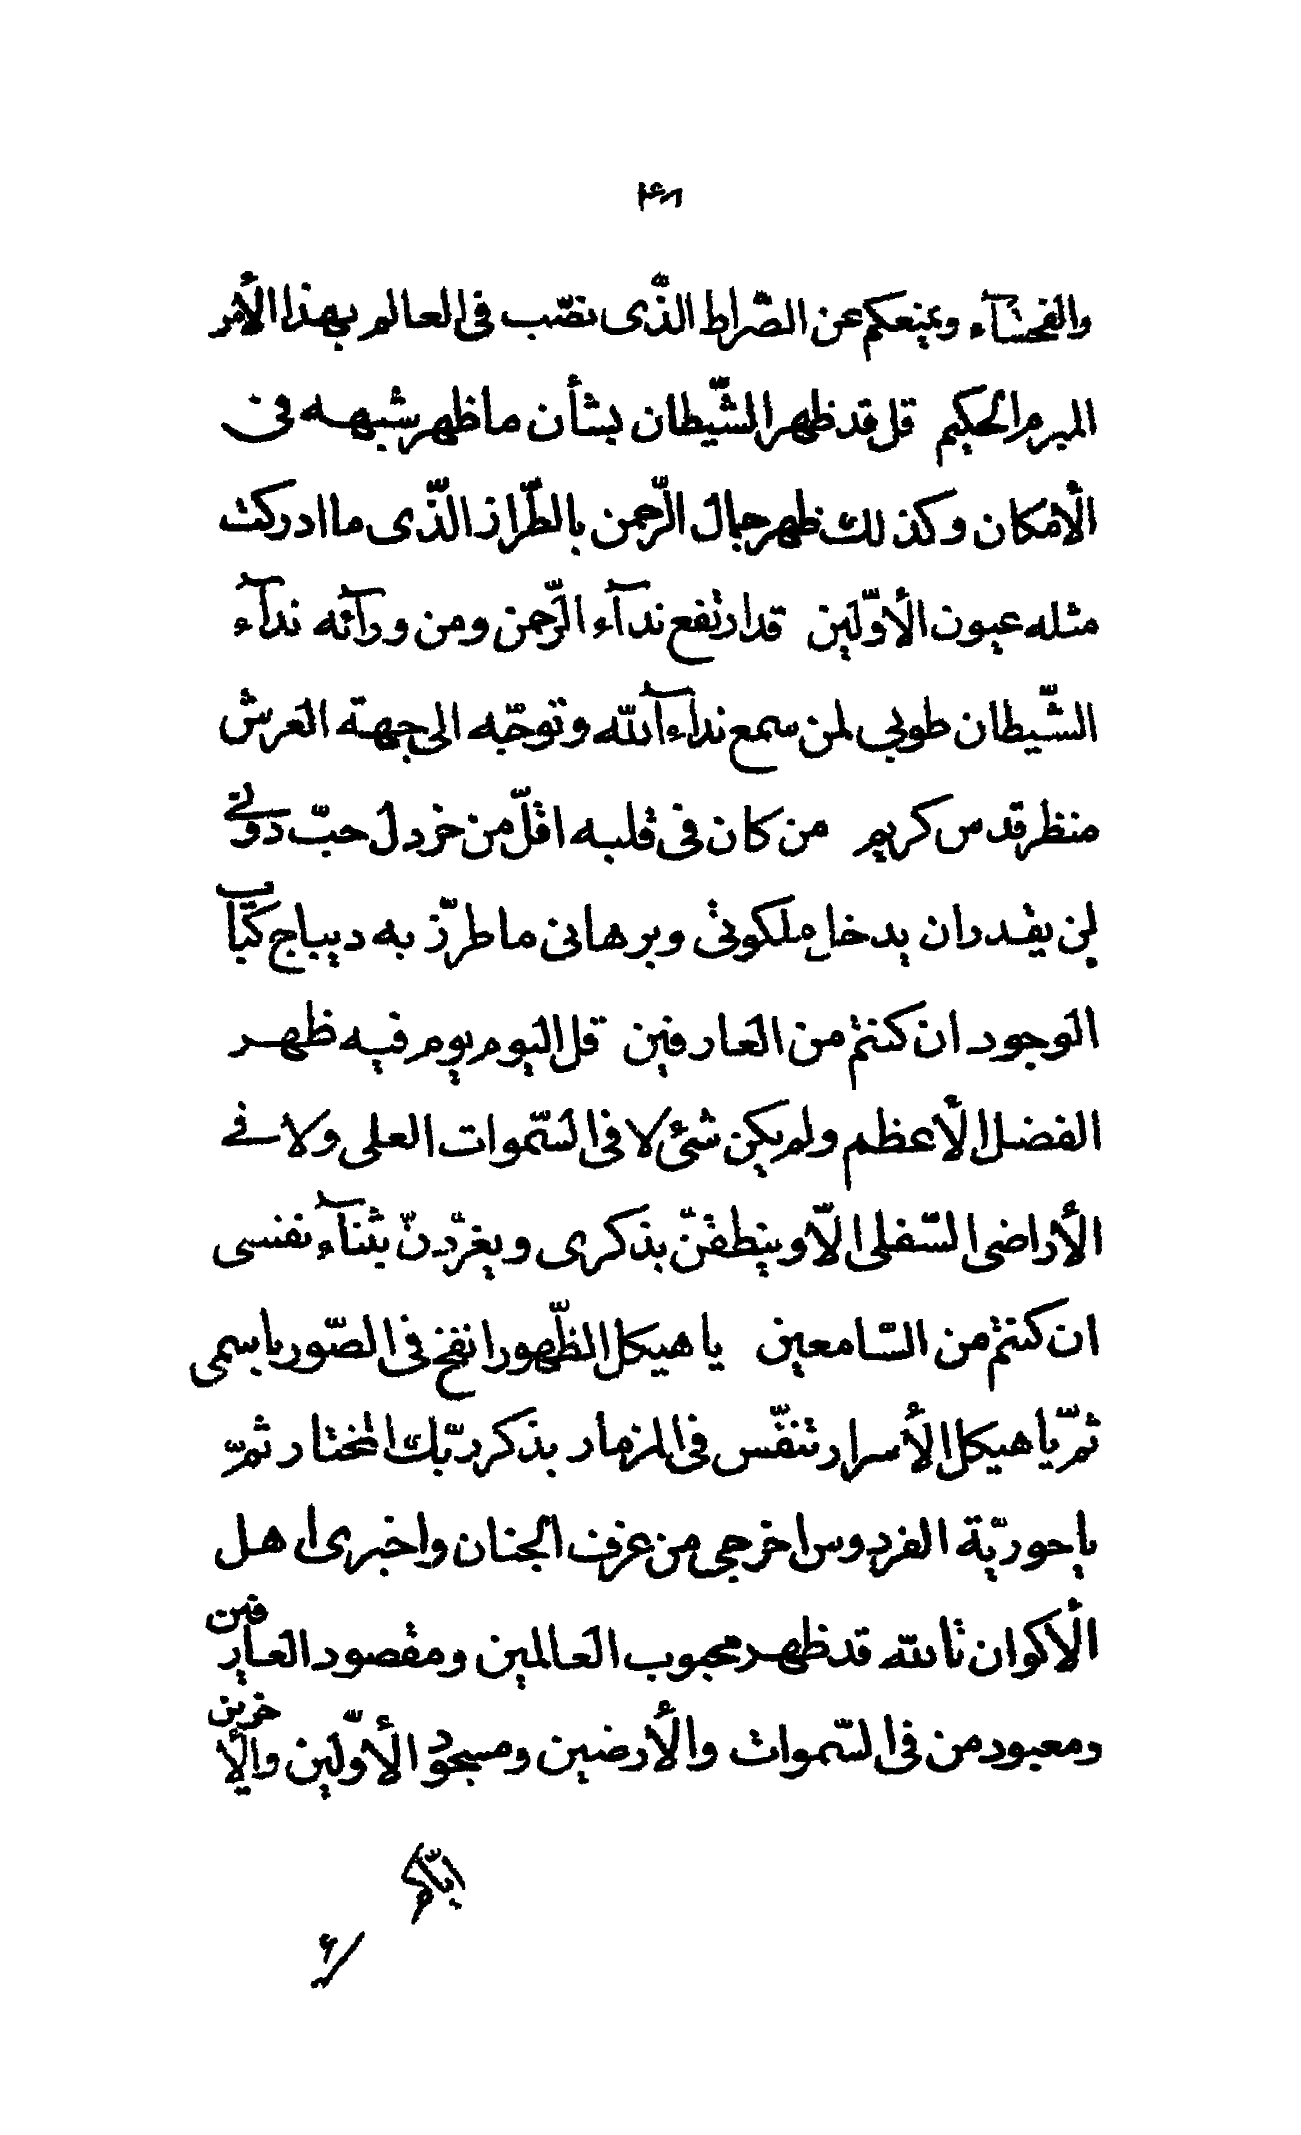 ۴۸
والفحشآء ويمنعكم عن الصّراط الّذى نصّب فى العالم بهذا الأمر
المبرم الحكيم قل قد ظهر الشّيطان بشأن ما ظهر شبهه فى
الأمكان وكذلك ظهر جمال الرّحمن بالطّراز الّذى ما ادركت
مثله عيون الأوّلين قد ارتفع ندآء الرّحمن ومن ورآئه ندآء
الشّيطان طوبى لمن سمع ندآء الله وتوجّه الى جهة العرش
منظر قدس كريم من كان فى قلبه اقلّ من خردل حبّ دونى
لن يقدر ان يدخل ملكوتى وبرهانى ما طرّز به ديباج كتاب
الوجود ان كنتم من العارفين قل اليوم يوم فيه ظهر
الفضل الأعظم ولم يكن شئ لا فى السّموات العلى ولا فى
الأراضى السّفلى الّا وينطقنّ بذكرى ويغرّدنّ بثنآء نفسى
ان كنتم من السّامعين يا هيكل الظّهور انفخ فى الصّور باسمى
ثمّ يا هيكل الأسرار تنفّس فى المزمار بذكر ربّك المختار ثمّ
يا حوريّة الفردوس اخرجى من غرف الجنان واخبرى اهل
الأكوان تالله قد ظهر محبوب العالمين ومقصود العارفين
ومعبود من فى السّموات والأرضين ومسجود الأوّلين والآخرين
ايّاكم